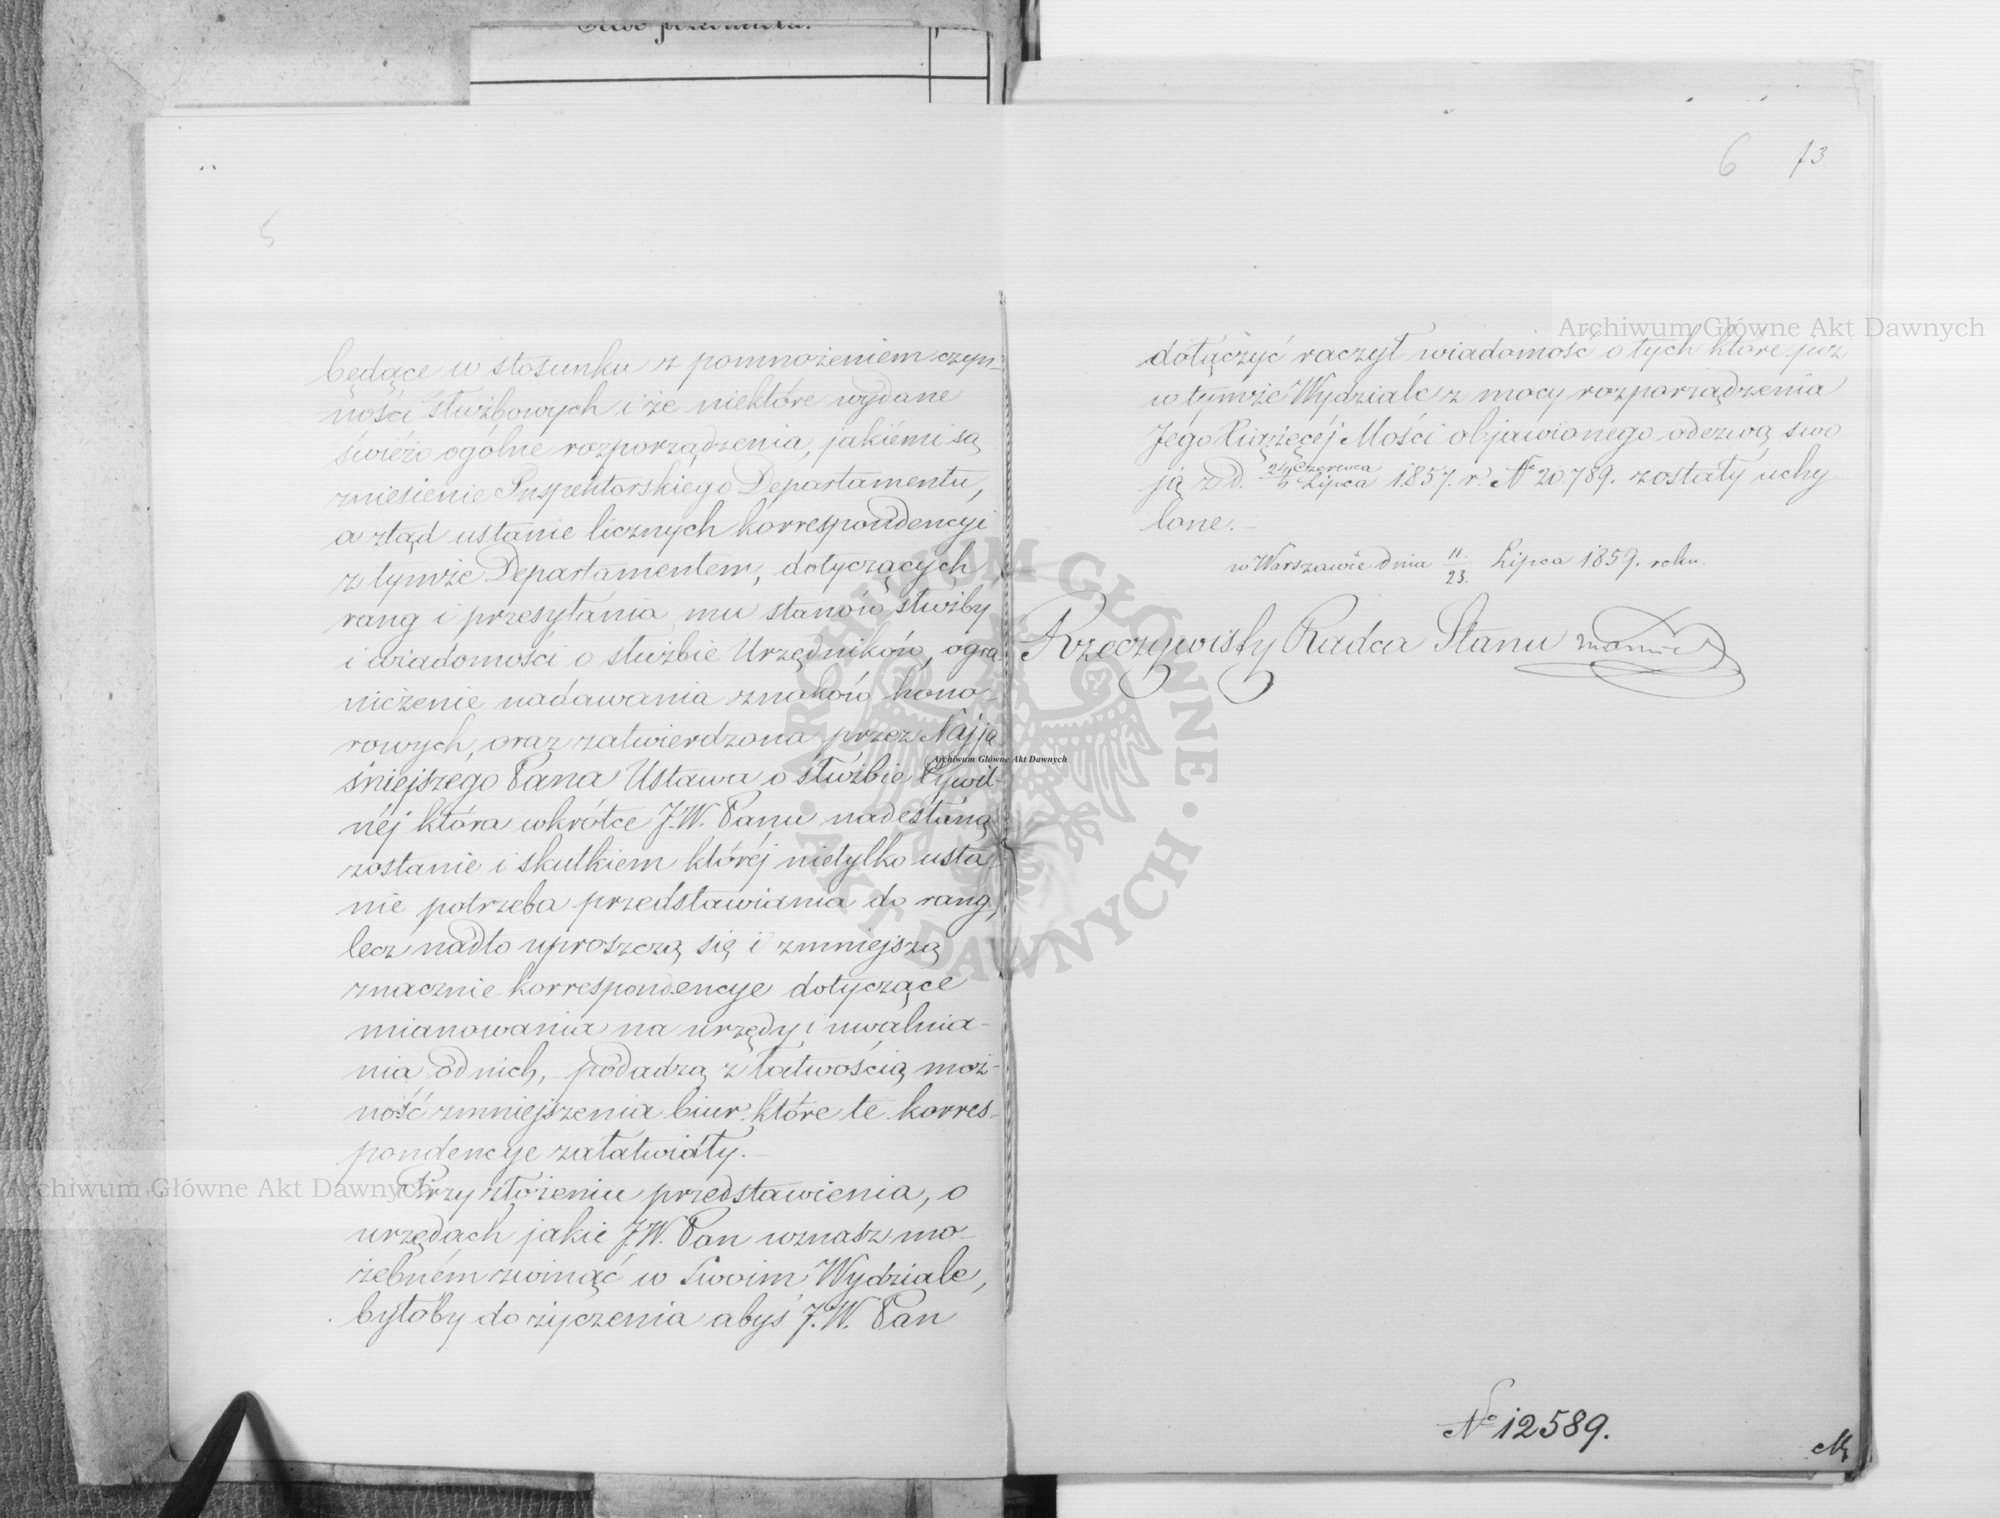 5
będące w stosunku z pomnożeniem czyn-
ności służbowych i że niektóre wydane
świeżo ogólne rozporządzenia, jakiemi są
zniesienie Inspektorskiego Departamentu,
a ztąd ustanie licznych korrespondencyi
z tymże Departamentem, dotyczących
rang i przesyłania mu stanów służby
i wiadomości o służbie Urzędników, ogra
niczenie nadawania znaków hono-
rowych, oraz zatwierdzona przez Najja
śniejszego Pana Ustawa o służbie Cywil-
néj która wkrótce J.W. Panu nadesłaną
zostanie i skutkiem któréj nietylko usta
nie potrzeba przedstawiania do rang,
lecz nadto uproszczą się i zmniejszą
znacznie korrespondencye dotyczące
mianowania na urzędy i uwalnia-
nia od nich, podadzą z łatwością moż-
ność zmniejszenia biur które te korres-
pondencye załatwiały.-
Przy złożeniu przedstawienia, o
urzędach jakie J.W. Pan uznasz mo-
żebném zwinąć w Swoim Wydziale,
byłoby do życzenia abyś J.W. Pan
6 73
dołączyć raczył wiadomość o tych które już
w tymże Wydziale z mocy rozporządzenia
Jego Książęcéj Mości objawionego odezwą swo
ją z d. 24 Czerwca / 6 Lipca 1857. r. No 20789. zostały uchy-
lone.-
w Warszawie dnia 11/23. Lipca 1857. roku.
Rzeczywisty Radca Stanu
No 12589.
Archiwum Główne Akt Dawnych
Archiwum Główne Akt Dawnych
Archiwum Główne Akt Dawnych
ARCHIWUM GŁÓWNE · AKT DAWNYCH ·